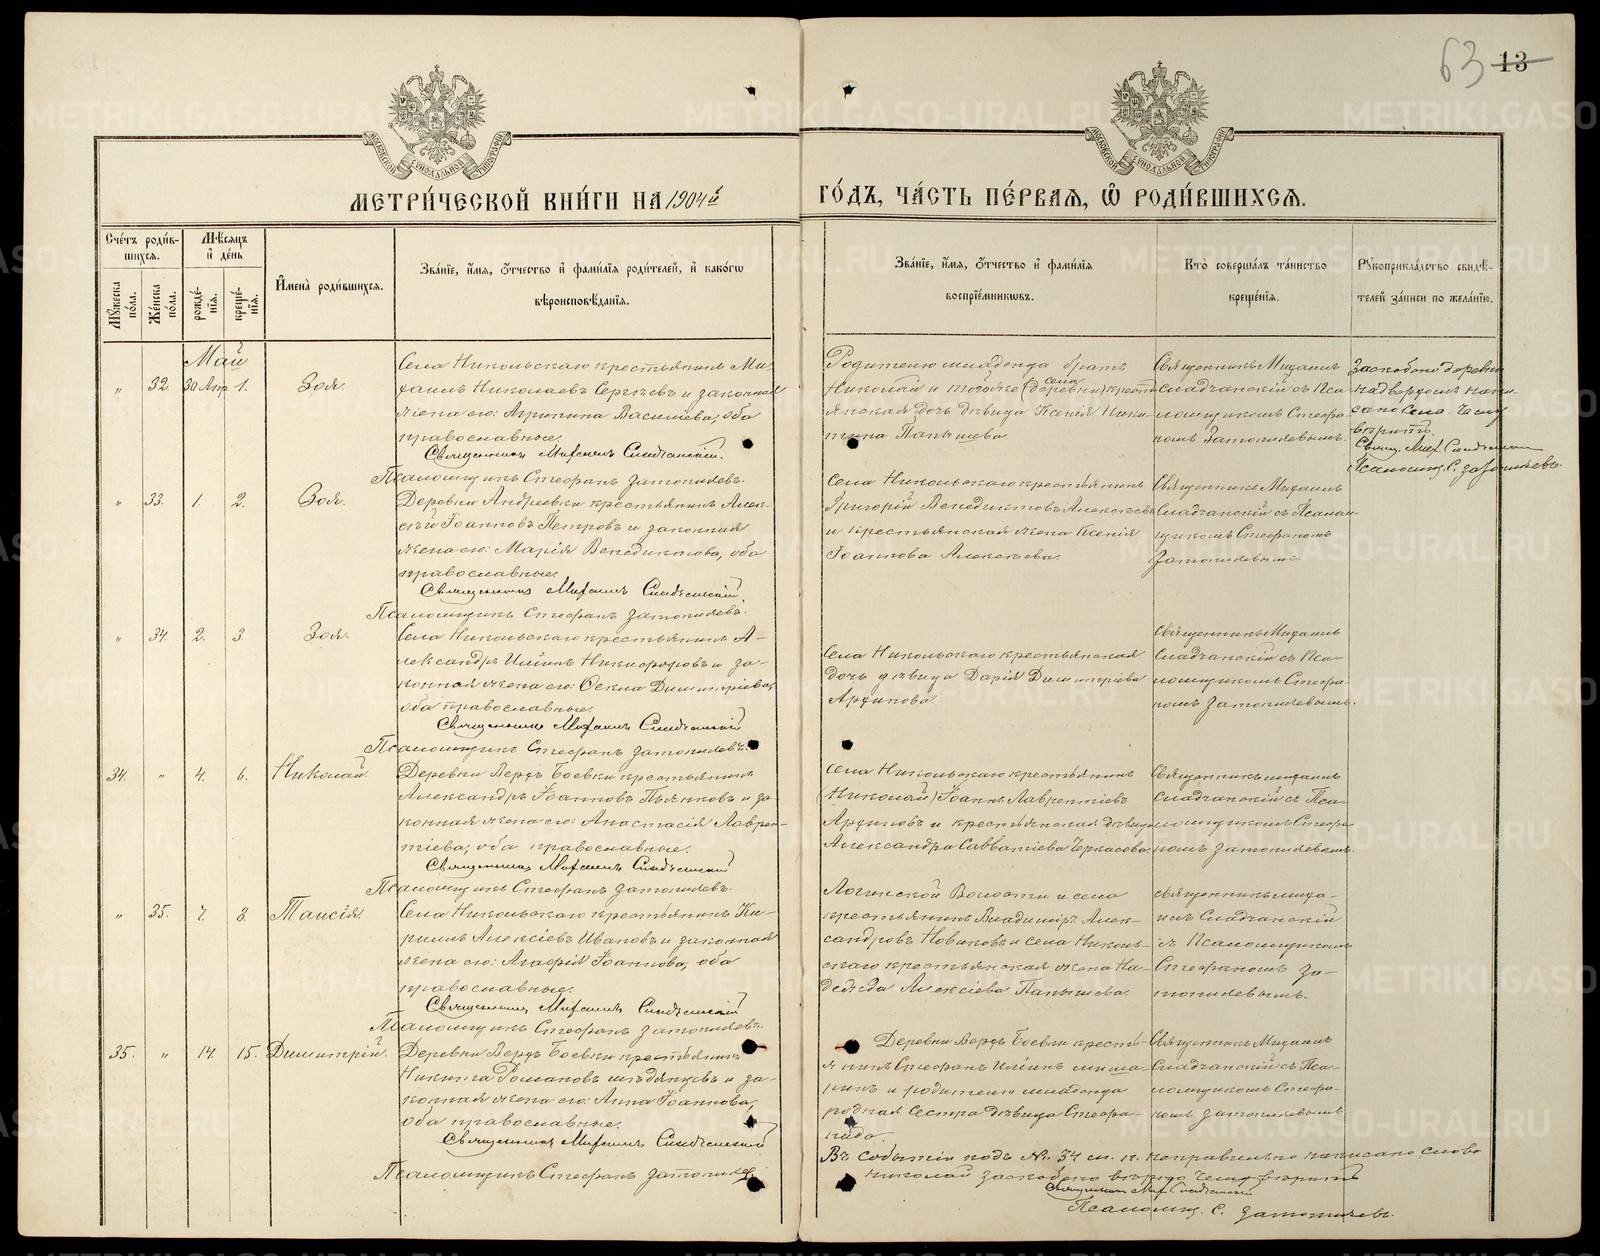 63 13
МОСКОВСКОЙ СѴНОДАЛЬНОЙ ТИПОГРАФІИ
МОСКОВСКОЙ СѴНОДАЛЬНОЙ ТИПОГРАФІИ
МЕТРИ́ЧЕСКОЙ КНИ́ГИ НА 1904й
ГО́ДЪ, ЧА́СТЬ ПЕ́РВАЯ, Ѡ҆ РОДИ́ВШИХСЯ.
Сче́тъ роди́в-
шихся.
Мꙋ́жеска по́ла.
Же́нска по́ла.
Мѣ́сяцъ и҆ де́нь
рожде́-
нія.
креще́-
нія.
И҆мена̀ роди́вшихся.
Зва́ніе, и҆́мя, ѻ҆́тчество и҆ фами́лія роди́телей, и҆ како́гѡ
вѣроисповѣ́данія.
Зва́ніе, и҆́мя, ѻ҆́тчество и҆ фами́лія
воспріе́мниковъ.
Кто̀ соверша́лъ та́инство
креще́нія.
Рꙋкоприкла́дство свидѣ́-
телей за́писи по жела́нію.
Май
„ 32. 30 Апр. 1. Зоя.
Села Никольскаго крестьянинъ Ми-
хаилъ Николаевъ Сергѣевъ и законная
жена его: Агрипина Василіева, оба
православные.
Священникъ Михаилъ
Псаломщикъ Стефанъ Затопляевъ.
Родителю младенца братъ
Николай и той же (деревни) села крестья-
янская дочь дѣвица Ксенія Ники-
тина Папышева.
Священникъ Михаилъ
съ Пса-
ломщикомъ Стефа-
номъ Затопляевымъ.
Заскоблено деревни
надъ впереди напи-
сано села. Чему
вѣрить.
Свящ. Мих.
Псаломщ. С. Затопляевъ.
„ 33. 1. 2. Зоя.
Деревни Андреевки крестьянинъ Алек-
сѣй Іоанновъ Петровъ и законная
жена его: Марія Венедиктова, оба
православные.
Священникъ Михаилъ
Псаломщикъ Стефанъ Затопляевъ.
Села Никольскаго крестьянинъ
Григорій Венедиктовъ Алексѣевъ
и крестьянская жена Ксенія
Іоаннова Алексѣева.
Священникъ Михаилъ
съ Псалом-
щикомъ Стефаномъ
Затопляевымъ.
„ 34. 2. 3. Зоя.
Села Никольскаго крестьянинъ А-
лександръ Иліинъ Никифоровъ и за-
конная жена его: Ѳекла Димитріева,
оба православные.
Священникъ Михаилъ
Псаломщикъ Стефанъ Затопляевъ.
Села Никольскаго крестьянская
дочь дѣвица Дарія Димитріева
Архипова.
Священникъ Михаилъ
съ Пса-
ломщикомъ Стефа-
номъ Затопляевымъ.
34. „ 4. 6. Николай.
Деревни Верхъ Боевки крестьянинъ
Александръ Іоанновъ Пьянковъ и за-
конная жена его: Анастасія Лаврен-
тіева, оба православные.
Священникъ Михаилъ
Псаломщикъ Стефанъ Затопляевъ.
Села Никольскаго крестьянинъ
(Николай) Іоаннъ Лаврентіевъ
Архиповъ и крестьянская дѣвица
Александра Савватіева Черкасова.
Священникъ Михаилъ
съ Пса-
ломщикомъ Стефа-
номъ Затопляевымъ.
„ 35. 7. 8. Таисія.
Села Никольскаго крестьянинъ Ки-
риллъ Алексіевъ Ивановъ и законная
жена его: Агафія Іоаннова, оба
православные.
Священникъ Михаилъ
Псаломщикъ Стефанъ Затопляевъ.
Логинской Волости и села
крестьянинъ Владиміръ Алек-
сандровъ Новиковъ и села Николь-
скаго крестьянская жена На-
дежда Алексіева Папышева.
Священникъ Миха-
илъ
съ Псаломщикомъ
Стефаномъ За-
топляевымъ.
35. „ 14. 15. Димитрій.
Деревни Верхъ Боевки крестьянинъ
Никита Романовъ и за-
конная жена его: Анна Іоаннова,
оба православные.
Священникъ Михаилъ
Псаломщикъ Стефанъ Затопляевъ.
Деревни Верхъ Боевки кресть-
янинъ Стефанъ Иліинъ
и родителю младенца
родная сестра дѣвица Стефа-
нида.
Священникъ Михаилъ
съ Пса-
ломщикомъ Стефа-
номъ Затопляевымъ.
Въ событіи подъ № 34 м. п. неправильно написано слово
Николай заскоблено вѣрно чему вѣрить
Священникъ Мих.
Псаломщ. С. Затопляевъ.
METRIKI.GASO-URAL.RU